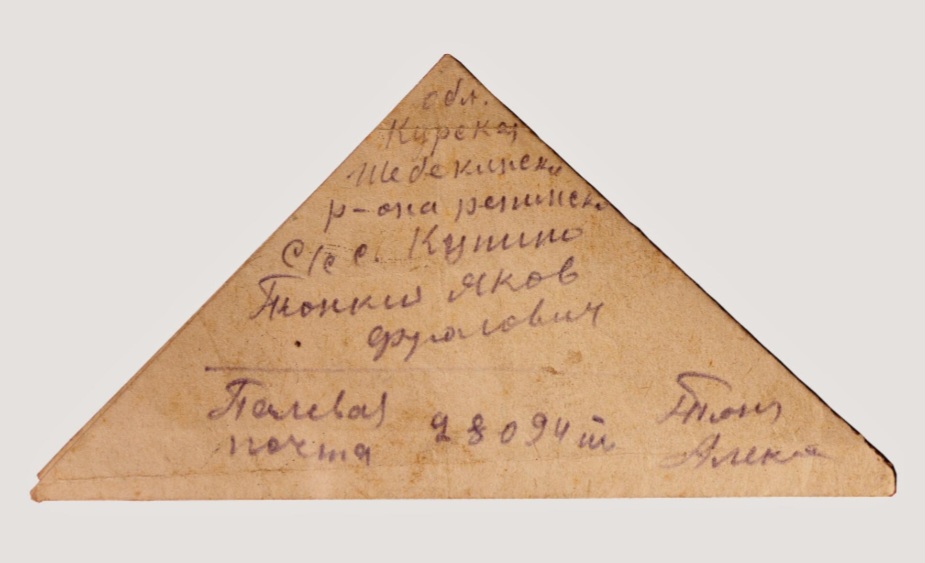 обл.
Курская
Шебекинск
р-она репинск
С/с с. Купино
Тонкий Яков
Фролович
Палевая
почта 28094 т
Тонк
Алекс